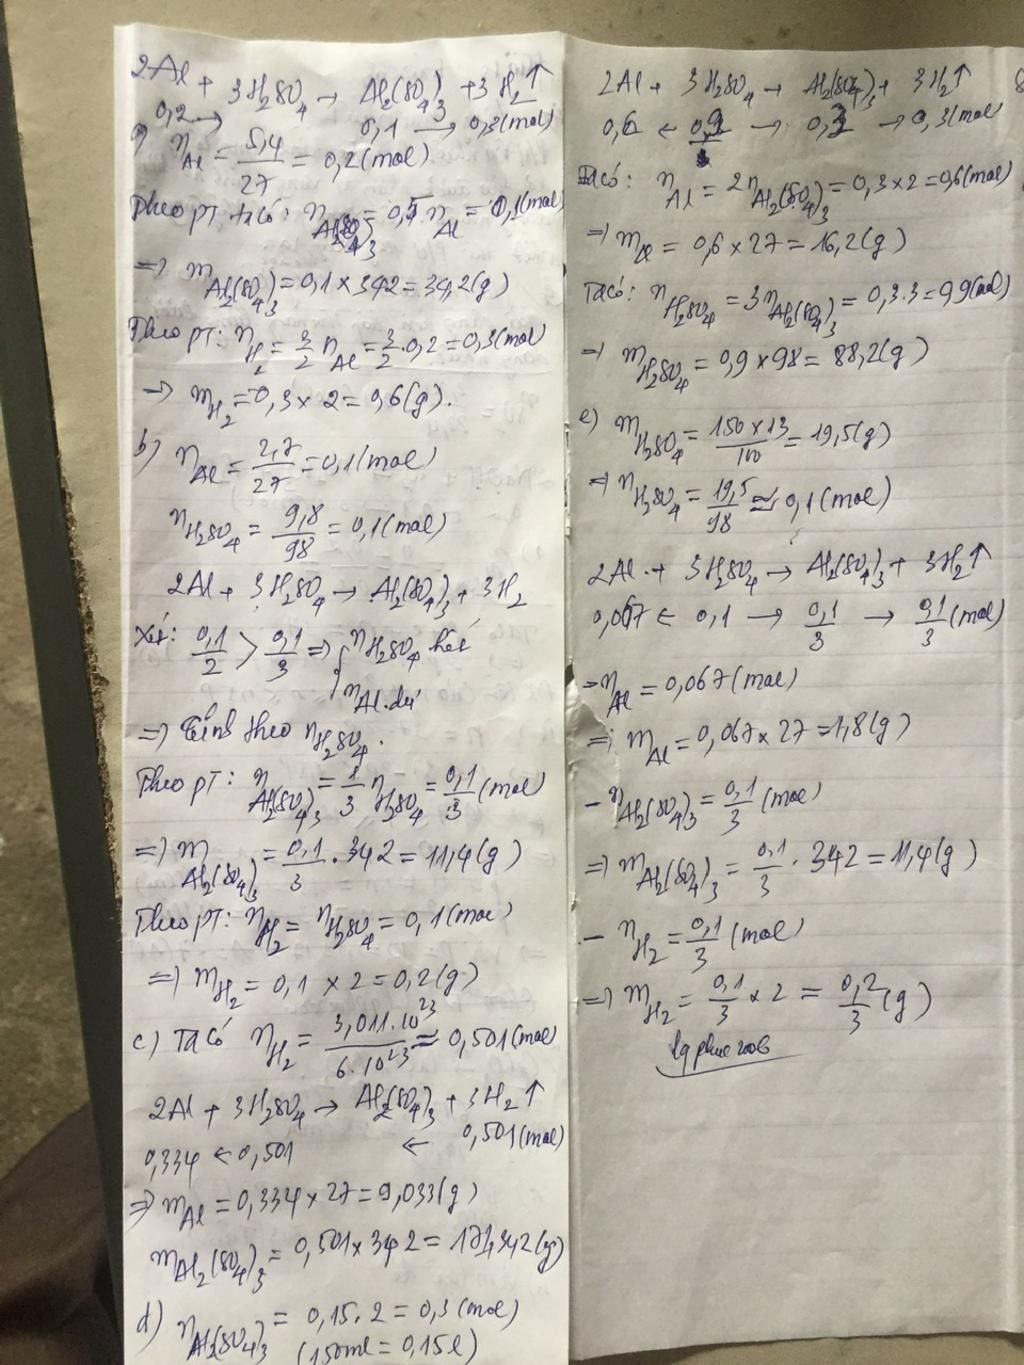 2Al + 3H₂SO₄ → Al₂(SO₄)₃ + 3H₂↑
0,2 → 0,1 → 0,3(mol)
a) nAl = 5,4/27 = 0,2(mol)
Theo pt, ta có: nAl₂(SO₄)₃ = 0,5 nAl = 0,1(mol)
=> mAl₂(SO₄)₃ = 0,1 × 342 = 34,2(g)
Theo pt: nH₂ = 3/2 nAl = 3/2 . 0,2 = 0,3(mol)
→ mH₂ = 0,3 × 2 = 0,6(g).
b) nAl = 2,7/27 = 0,1(mol)
nH₂SO₄ = 9,8/98 = 0,1(mol)
2Al + 3H₂SO₄ → Al₂(SO₄)₃ + 3H₂
Xét: 0,1/2 > 0,1/3 => { nH₂SO₄ hết
nAl dư
=> Tính theo nH₂SO₄.
Theo pt: nAl₂(SO₄)₃ = 1/3 nH₂SO₄ = 0,1/3 (mol)
=> mAl₂(SO₄)₃ = 0,1/3 . 342 = 11,4(g)
Theo pt: nH₂ = nH₂SO₄ = 0,1(mol)
=> mH₂ = 0,1 × 2 = 0,2(g)
c) Ta có nH₂ = 3,011.10²³/6.10²³ ≈ 0,501(mol)
2Al + 3H₂SO₄ → Al₂(SO₄)₃ + 3H₂↑
0,334 ← 0,501 ← 0,501(mol)
=> mAl = 0,334 × 27 = 9,033(g)
mAl₂(SO₄)₃ = 0,501 × 342 = 171,342(g)
d) nAl₂(SO₄)₃ = 0,15.2 = 0,3(mol)
(150ml = 0,15l)
2Al + 3H₂SO₄ → Al₂(SO₄)₃ + 3H₂↑
0,6 ← 0,9 → 0,3 → 0,3(mol
Ta có: nAl = 2nAl₂(SO₄)₃ = 0,3×2 = 0,6(mol)
=> mAl = 0,6 × 27 = 16,2(g)
Ta có: nH₂SO₄ = 3nAl₂(SO₄)₃ = 0,3.3 = 0,9(mol)
=> mH₂SO₄ = 0,9 × 98 = 88,2(g)
e) mH₂SO₄ = 150×13/100 = 19,5(g)
=> nH₂SO₄ = 19,5/98 ≈ 0,1(mol)
2Al + 3H₂SO₄ → Al₂(SO₄)₃ + 3H₂↑
0,067 ← 0,1 → 0,1/3 → 0,1/3 (mol)
- nAl = 0,067(mol)
=> mAl = 0,067 × 27 = 1,8(g)
- nAl₂(SO₄)₃ = 0,1/3 (mol)
=> mAl₂(SO₄)₃ = 0,1/3 . 342 = 11,4(g)
- nH₂ = 0,1/3 (mol)
=> mH₂ = 0,1/3 × 2 = 0,2/3 (g)